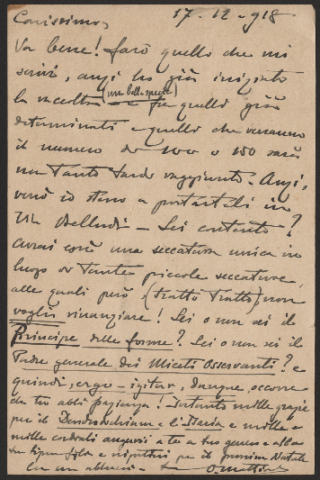 17-12-918
Carissimo,
Va bene! Farò quello che mi
scrivi, anzi ho già iniziato
la raccolta (una bella specie) e fra quello già
determinati e quello che verranno
il numero di 100 o 150 sarà
un tanto tardo raggiunto. Anzi,
verrò io stesso a portarteli in
Via Belludi - Sei contento?
Avrai così una seccatura unica in
luogo di tante piccole seccature,
alle quali però (tratto tratto) non
voglio rinunziare! Sei o non sei il
Principe delle forme? Sei o non sei il
Padre generale dei Miceti Osservanti? e
quindi, ergo - igitur, dunque, occorre
che tu abbi pazienza! Intanto mille grazie
per il e l' e mille e
mille cordiali augurii a te a tuo genero e alla
tua figlia e nipotini per il prossimo Natale
Con un abbraccio tuo